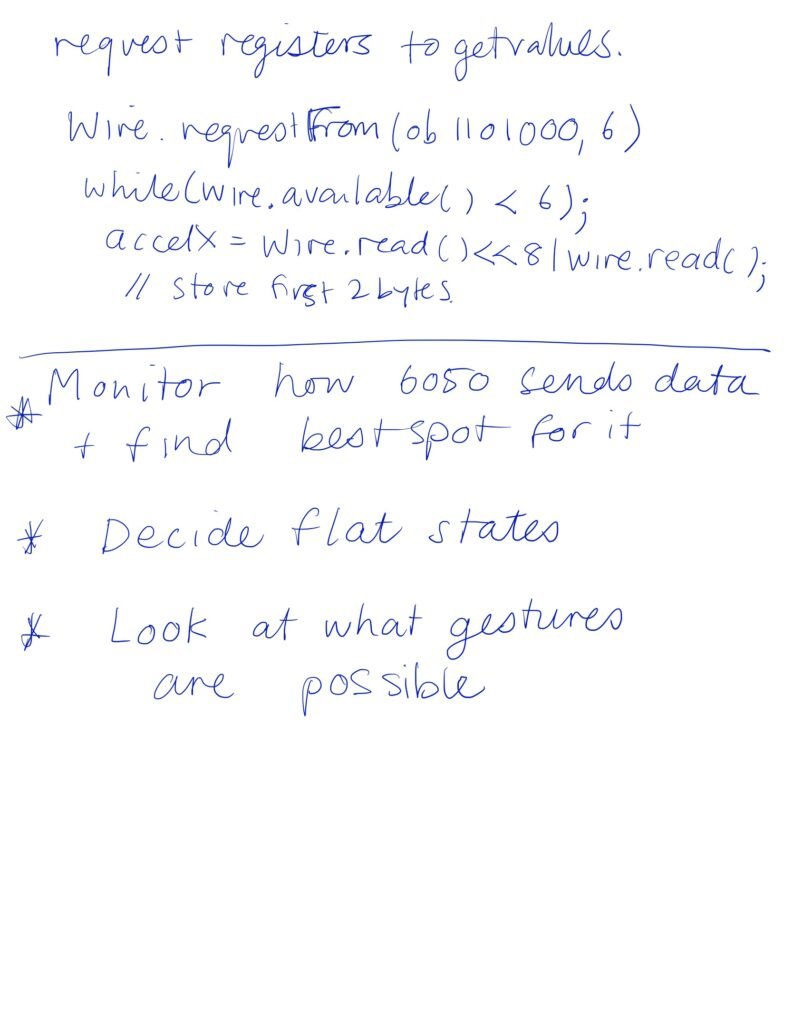 request registers to getvalues.
Wire.requestFrom(0b1101000, 6)
while(wire.available() < 6);
accelX = Wire.read()<<8|wire.read();
// store first 2 bytes.
* Monitor how 6050 sends data
+ find best spot for it
* Decide flat states
* Look at what gestures
are possible